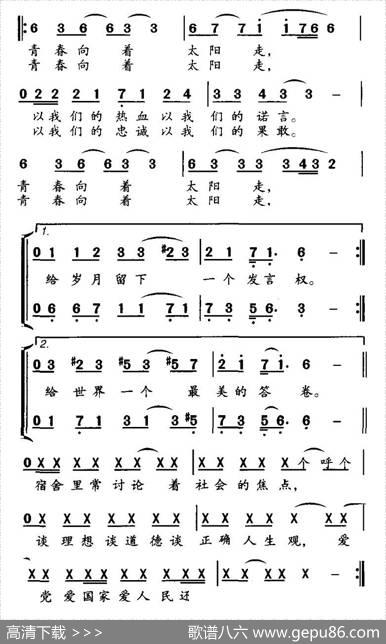 6 3 6 6 3 3 6 7 7 i i 7 6 6
青春向着 太阳走，
青春向着 太阳走，
0 2 2 2 2 1 7 1 2 4 3 3 4 3 3 -
以我们的热血以我们的诺言。
以我们的忠诚以我们的果敢。
6 3 3 6 3 3 6 7 3 3 3 4 3 2
青春向着 太阳走，
青春向着 太阳走，
1.
0 1 1 2 3 3 #2 3 2 1 7 1 · 6 -
给岁月留下 一个发言权。
0 6 6 7 1 1 7 1 7 3 5 6 · 3 -
2.
0 3 #2 3 #5 3 #5 7 2 i 7 i · 6 -
给世界一个 最美的答卷。
0 1 7 1 3 1 3 #5 7 3 5 6 · 6 -
0 X X X X X X X X X X X X 个 呼个
宿舍里常讨论着社会的焦点，
0 X X X X X X X X X X X X X X
谈理想谈道德谈正确人生观，爱
X X X X X X X X
党爱国家爱人民还
高清下载 >>>
歌谱八六 www.gepu86.com